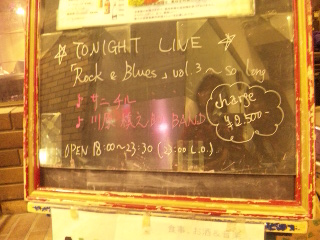 TONIGHT LINE
「Rock & Blues」vol.3～so long
♪サニーチル
♪川 之 BAND
charge
¥2.500-
OPEN 18:00～23:30 (23:00 L.O.)